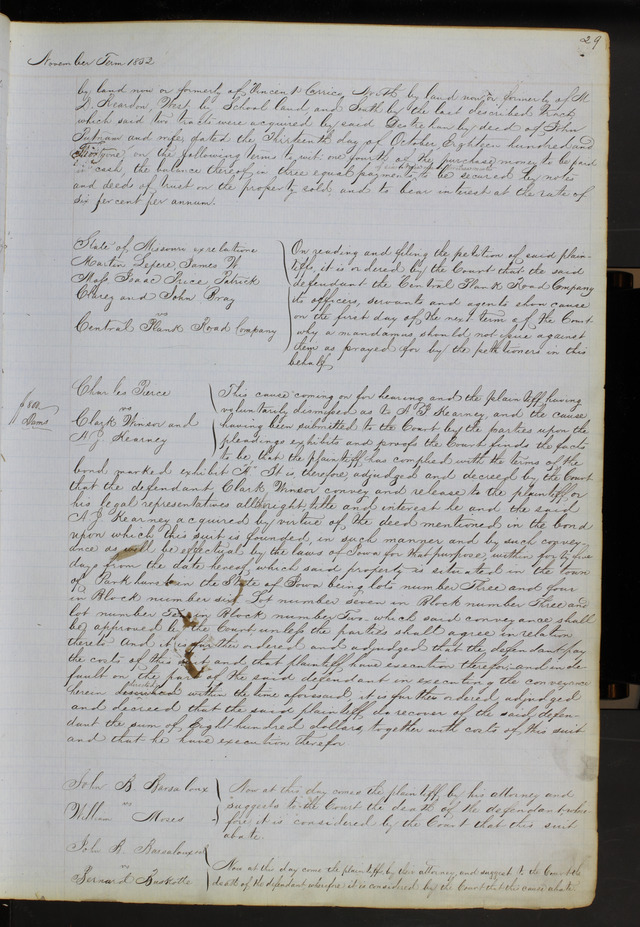 29
November Term 1852
by land now or formerly of Vincent Carrico, South by land now or formerly of H
D. Reardon, West by School land and South by the last described tract
which said two tracts were acquired by said by deed of John
Putnam and wife dated the Thirteenth day of October Eighteen hundred and
on the following terms to wit: one fourth of the purchase money to be paid
in cash, the balance thereof in three equal payments to be secured by notes
and deeds of trust on the property sold and to bear interest at the rate of
Six per cent per annum.
State of Missouri ex relatione
Martin Lepere James W
Moss Isaac Peace Patrick
and John Bray
vs
Central Plank Road Company
On reading and filing the petition of said plain-
tiffs, it is ordered by the Court that the said
defendant the Central Plank Road Company
its officers, servants and agents show cause
on the first day of the next term of the Court
why a mandamus should not issue against
them as prayed for by the petitioners in this
behalf
Charles Pierce
vs
Clark Winsor and
A J Kearney
$800
Dams
This cause coming on for hearing and the plaintiff having
voluntarily dismissed as to A J Kearney, and the cause
having been submitted to the Court by the parties upon the
pleadings exhibits and proofs the Court finds the facts
to be that the plaintiff has complied with the terms of the
bond marked exhibit It is therefore adjudged and decreed by the Court
that the defendant Clark Winsor convey and release to the plaintiff or
his legal representatives all the right title and interest he and the said
A J Kearney acquired by virtue of the deed mentioned in the bond
upon which this suit is founded, in such manner and by such convey-
ance as will be effectual by the laws of Iowa for that purpose, within forty five
days from the date hereof, which said property is situated in the town
of Park hurst in the State of Iowa being lots number Three and four
in Block number six Lot number seven in Block number Three and
lot number in Block number Two which said conveyance shall
be approved by the Court unless the parties shall agree in relation
thereto And it is further ordered and adjudged that the defendant pay
the costs of this suit and that plaintiff have execution therefor, and in de-
fault on the part of the said defendant in executing the conveyance
herein described within the time aforesaid, it is further ordered, adjudged
and decreed that the said plaintiff do recover of the said defen-
dant the sum of Eight hundred dollars together with costs of this suit
and that he have execution therefor
John B Barsaloux
vs
William Moses
Now at this day comes the plaintiff by his attorney and
suggests to the Court the death of the defendant, where
fore it is considered by the Court that this suit
abate.
John B Barsaloux
vs
Bernard
Now at this day come the plaintiffs by their attorney, and suggest to the Court the
death of the defendant wherefore it is considered by the Court that this cause abate